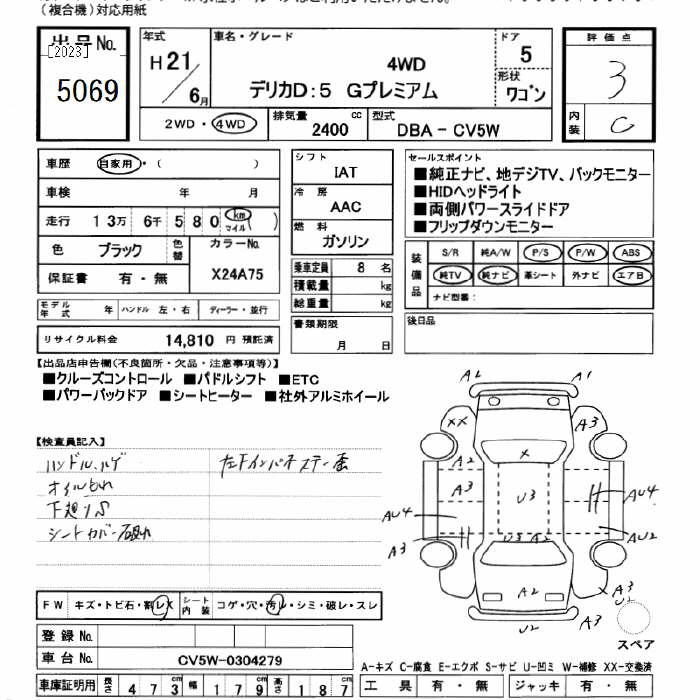 (複合機)対応用紙
出品No.
[2023]
5069
年式
H21/6月
車名・グレード
4WD
デリカD:5 Gプレミアム
ドア
5
形状
ワゴン
評価点
3
内装
C
2WD・4WD
排気量
2400 cc
型式
DBA - CV5W
車歴 自家用・( )
車検 年 月
走行 13万 6千 580 km マイル ( )
色 ブラック 色替 カラーNo.
X24A75
保証書 有・無
モデル年式 年 ハンドル 左・右 ディーラー・並行
リサイクル料金 14,810 円 預託済
シフト
IAT
冷房
AAC
燃料
ガソリン
乗車定員 8 名
積載量 kg
総重量 kg
書類期限
月 日
セールスポイント
■純正ナビ、地デジTV、バックモニター
■HIDヘッドライト
■両側パワースライドドア
■フリップダウンモニター
装備品
S/R 純A/W P/S P/W ABS
純TV 純ナビ 革シート 外ナビ エアB
ナビ型番:
後日品
【出品店申告欄(不良箇所・欠品・注意事項等)】
■クルーズコントロール ■パドルシフト ■ETC
■パワーバックドア ■シートヒーター ■社外アルミホイール
【検査員記入】
ハンドル、ハゲ
オイルもれ
下廻りS
シートカバー破れ
FW キズ・トビ石・割レX シート内装 コゲ・穴・汚レ・シミ・破レ・スレ
登録No.
車台No. CV5W-0304279
車庫証明用 長さ 473 cm 幅 179 cm 高さ 187 cm
A2 A1
XX A3
A2 X
A3 U3 AU4
AU4
A3 U3 A2 AU2
A2 X A3
U2
U2 A3
スペア
A-キズ C-腐食 E-エクボ S-サビ U-凹ミ W-補修 XX-交換済
工具 有・無 ジャッキ 有・無